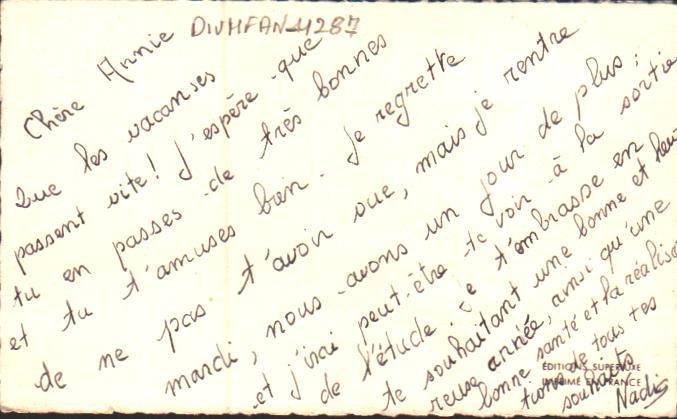 DIVMFAN_4287
Chère Annie
Que les vacanses
passent vite! J'espère que
tu en passes de très bonnes
et tu t'amuses bien. Je regrette
de ne pas t'avoir vue, mais je rentre
mardi, nous avons un jour de plus;
et j'irai peut-être te voir à la sortie
de l'étude. Je t'embrasse en
te souhaitant une bonne et heu
reuse année, ainsi qu'une
bonne santé et la réalisa
tion de tous tes
souhaits
Nadia
ÉDITIONS SUPERLUXE
IMPRIMÉ EN FRANCE